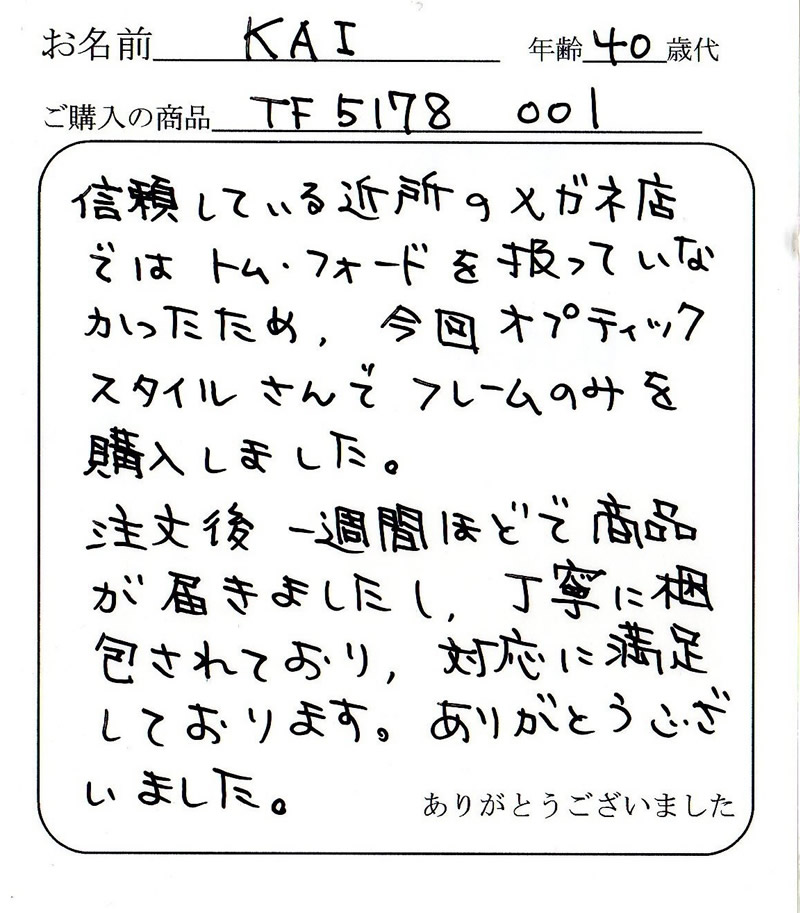 お名前 KAI 年齢 40 歳代
ご購入の商品 TF5178 001
信頼している近所のメガネ店
ではトム・フォードを扱っていな
かったため, 今回オプティック
スタイルさんでフレームのみを
購入しました。
注文後一週間ほどで商品
が届きましたし, 丁寧に梱
包されており, 対応に満足
しております。ありがとうござ
いました。
ありがとうございました